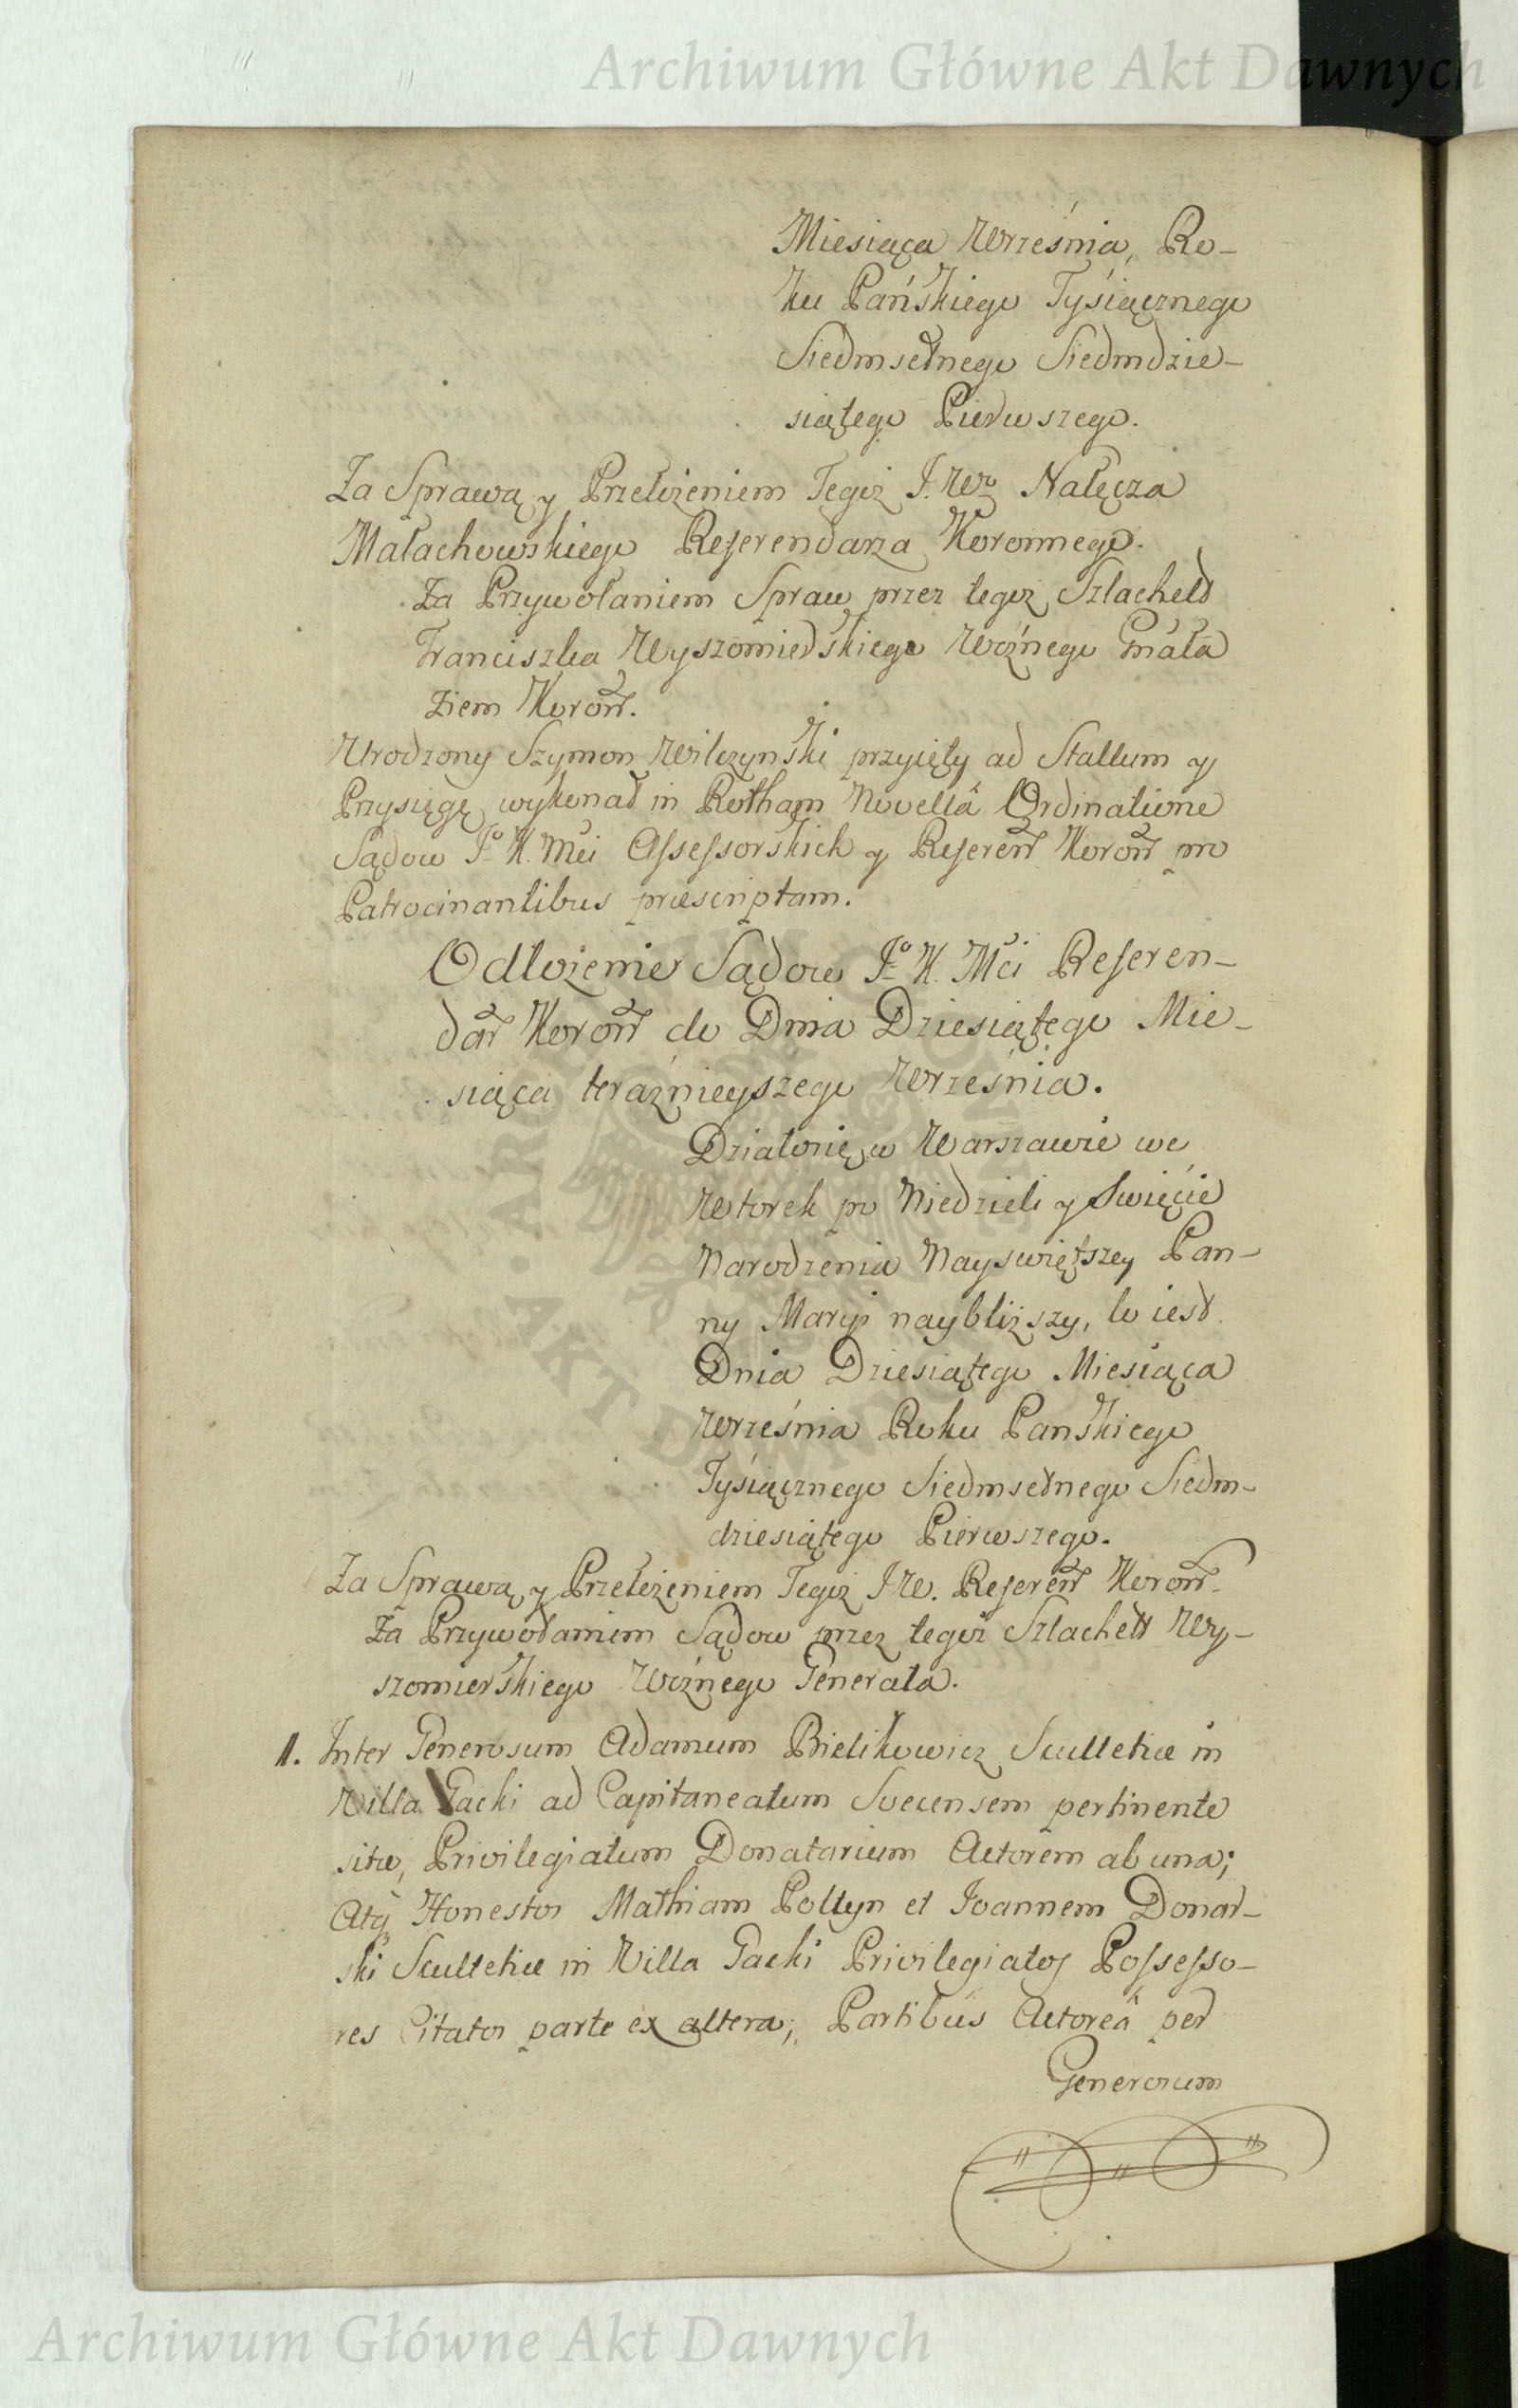 Archiwum Główne Akt Dawnych
Miesiąca Września, Ro-
ku Pańskiego Tysiącznego
Siedmsetnego Siedmdzie-
siątego Pierwszego.
Za Sprawą y Przełożeniem Tegoż J. Wo Nałęcza
Małachowskiego Referendarza Koronnego.
Za Przywołaniem Spraw przez tegoż Szlachett
Franciszka Wyszomierskiego Woźnego Gnała
Ziem Koron.
Urodzony Szymon Wilczynski przyięty ad Stallum y
Przysięgę wykonał in Rotham Novellâ Ordinatione
Sądow Jo K. Mci Assessorskich y Referen Koron pro
Patrocinantibus præscriptam.
Odłożenie Sądow Jo K. Mci Referen-
dar Koron do Dnia Dziesiątego Mie-
siąca teraźnieyszego Września.
Działo się w Warszawie we
Wtorek po Niedzieli y Swięcie
Narodzenia Nayswiętszey Pan-
ny Maryi naybliższy, to iest
Dnia Dziesiątego Miesiąca
Września Roku Panskiego
Tysiącznego Siedmsetnego Siedm-
dziesiątego Pierwszego.
Za Sprawą y Przełożeniem Tegoż J W. Referen Koron.
Za Przywołaniem Sądow przez tegoż Szlachett Wy-
szomierskiego Woźnego Generała.
1. Inter Generosum Adamum Bielikowicz Scultetiæ in
Villa Gacki ad Capitaneatum Svecensem pertinente
sitæ, Privilegiatum Donatarium Actorem ab una;
Atq Honestos Mathiam Poltyn et Joannem Donar-
ski Scultetiæ in Villa Gacki Privilegiatos Possesso-
res Citatos parte ex altera; Partibus Actoreâ per
Generosum
Archiwum Główne Akt Dawnych